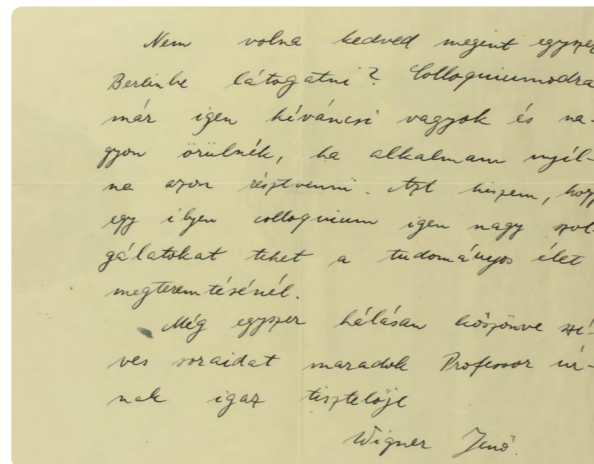 Nem volna kedved megint egyszer
Berlinbe látogatni? Colloquiumodra
már igen kíváncsi vagyok és na-
gyon örülnék, ha alkalmam nyíl-
na azon résztvenni. Azt hiszem, hogy
egy ilyen colloquium igen nagy szol-
gálatokat tehet a tudományos élet
megteremtésénél.
Még egyszer hálásan köszönve szí-
ves soraidat maradok Professor úr-
nak igaz tisztelője
Wigner Jenő.